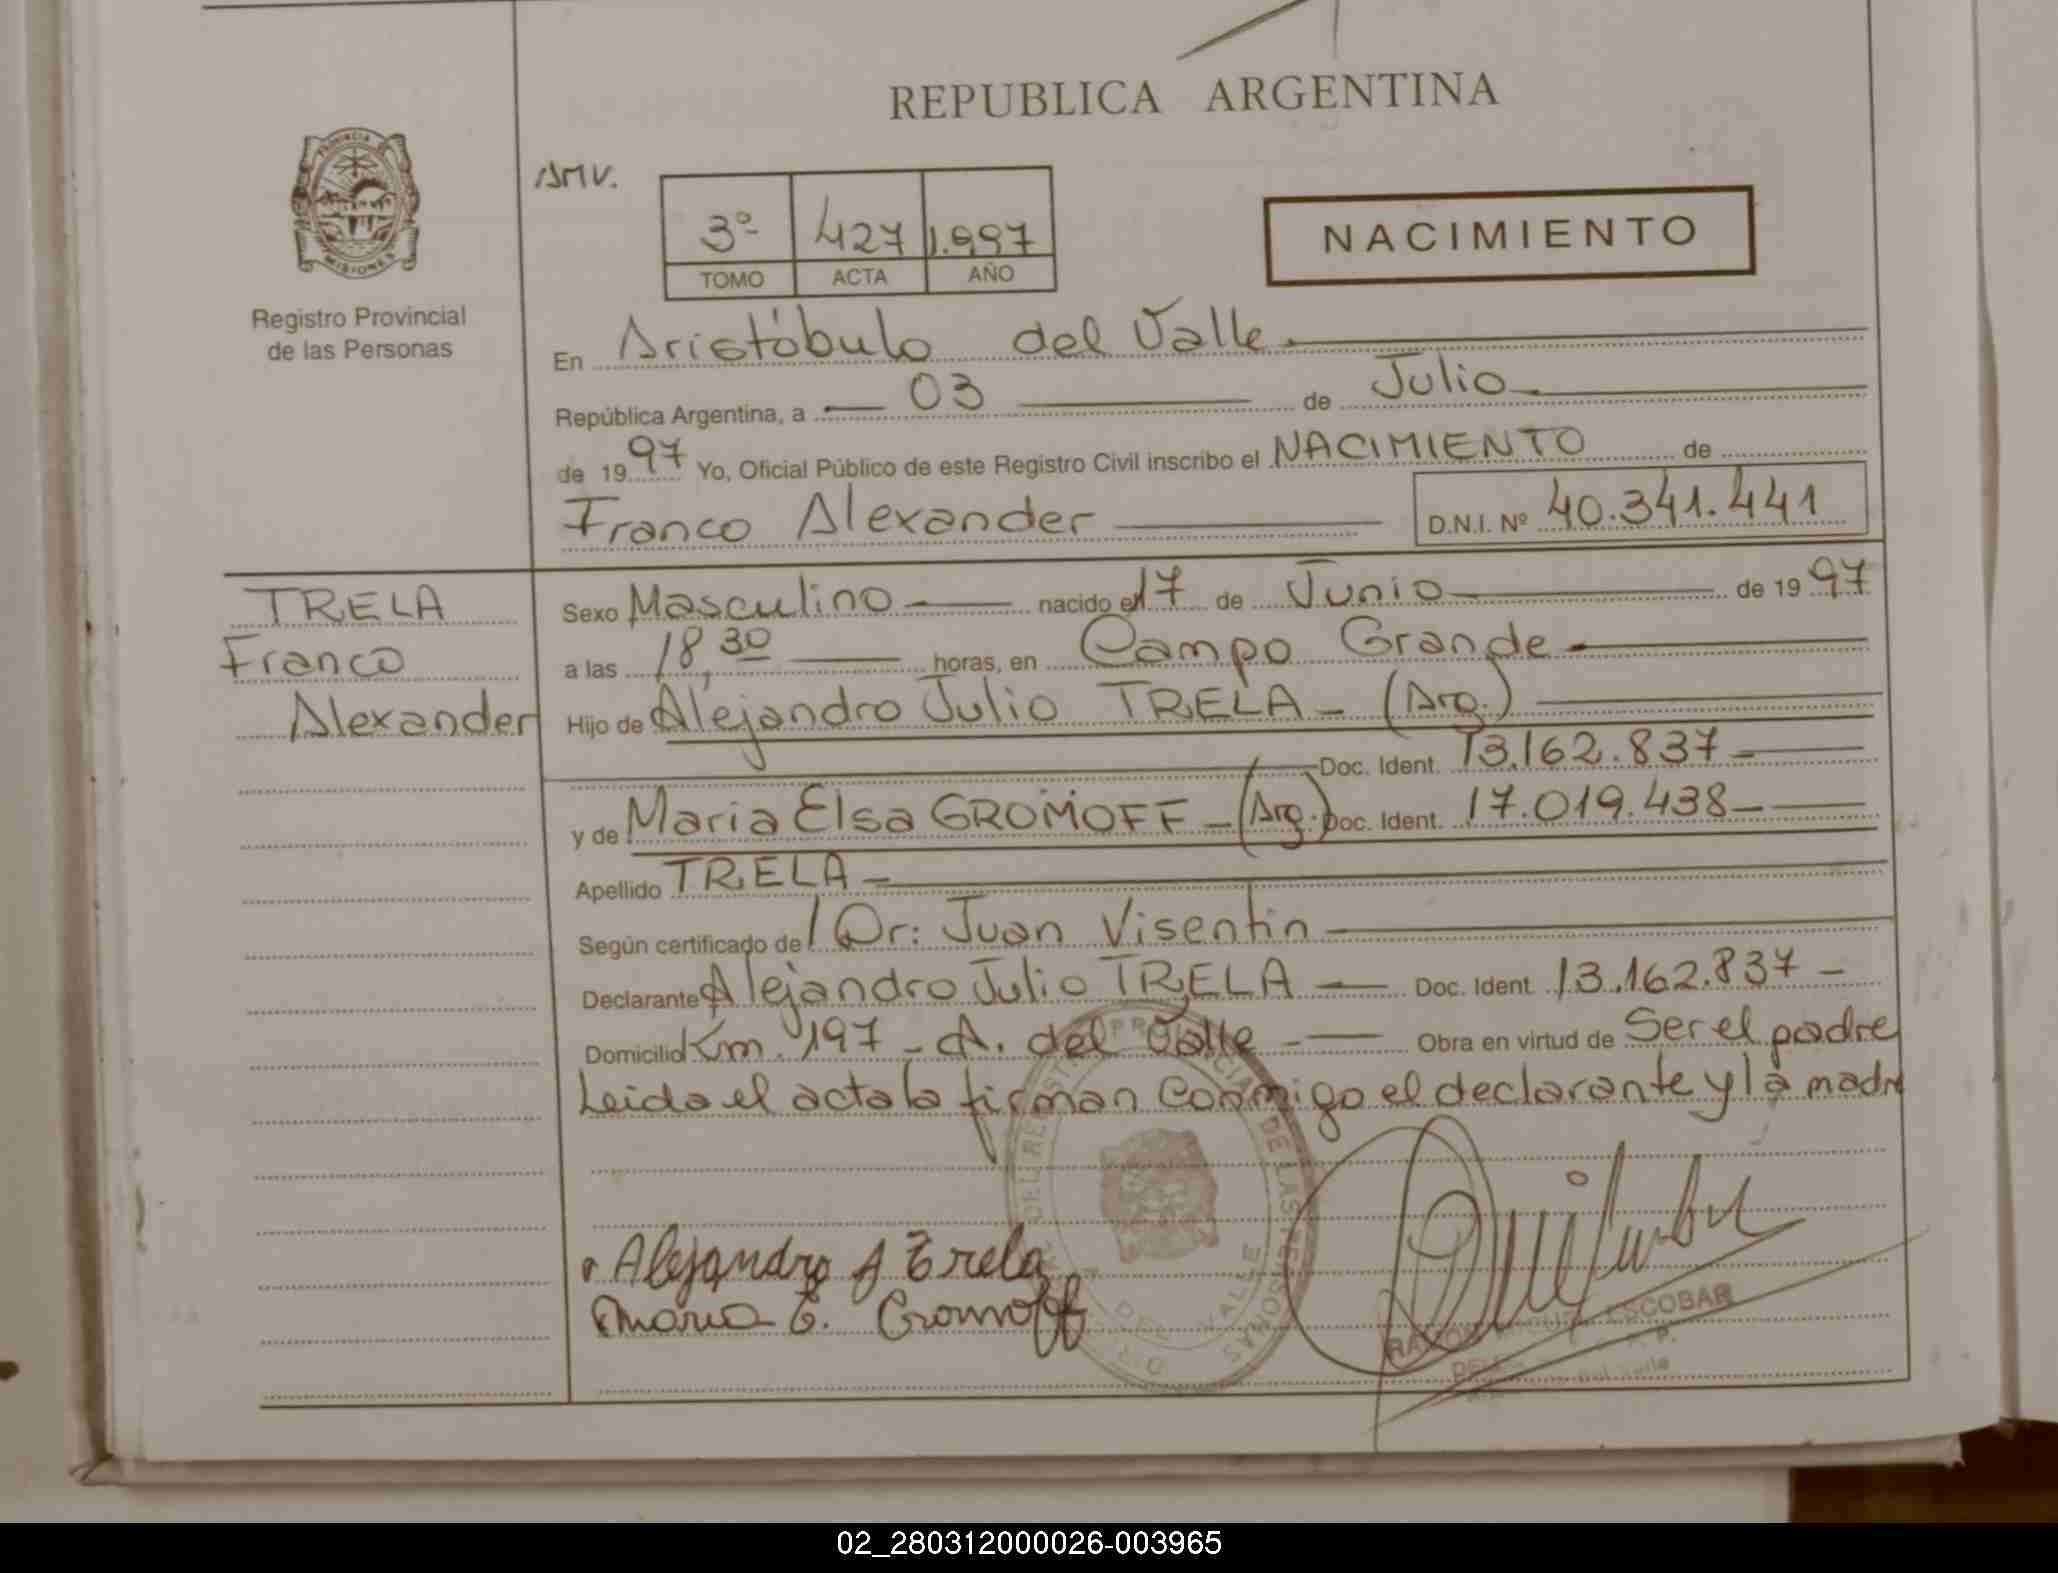 REPUBLICA ARGENTINA
PROVINCIA DE
MISIONES
Registro Provincial
de las Personas
3º 427 1.997
TOMO ACTA AÑO
NACIMIENTO
En Aristóbulo del Valle
República Argentina, a 03 de Julio
de 1997 Yo, Oficial Público de este Registro Civil inscribo el NACIMIENTO de
Franco Alexander D.N.I. Nº 40.341.441
TRELA
Franco
Alexander
Sexo Masculino nacido el 17 de Junio de 1997
a las 18,30 horas, en Campo Grande
Hijo de Alejandro Julio TRELA (Arg.)
Doc. Ident. 13.162.837
y de Maria Elsa GROMOFF (Arg.) Doc. Ident. 17.019.438
Apellido TRELA
Según certificado del Dr: Juan Visentin
Declarante Alejandro Julio TRELA Doc. Ident. 13.162.837
Domicilio Km. 197 - A. del Valle Obra en virtud de Ser el padre
Leida el acta la firman conmigo el declarante y la madre
Alejandro J Trela
Maria E. Gromoff
ESCOBAR
del Valle
02_280312000026-003965